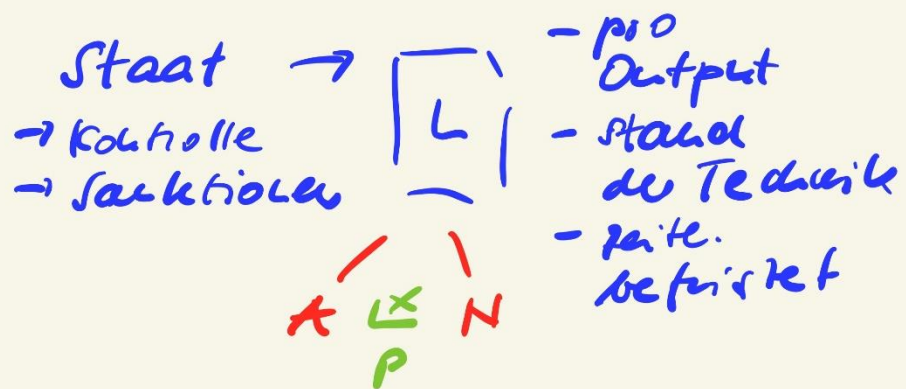 Staat →
→ Kontrolle
→ Sanktionen
L
- pro
Output
- Stand
der Technik
- zeitl.
befristet
A N
P